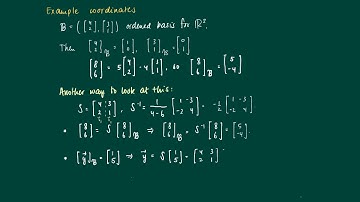 Example coordinates
B = ( [4 2], [3 1] ) ordered basis for ℝ².
Then [4 2]_B = [1 0], [3 1]_B = [0 1]
[8 6] = 5 [4 2] - 4 [3 1], so [8 6]_B = [5 -4]
Another way to look at this:
S = [4 3; 2 1], S⁻¹ = 1/(4-6) [1 -3; -2 4] = -1/2 [1 -3; -2 4].
• [8 6] = S [8 6]_B ⇒ [8 6]_B = S⁻¹ [8 6] = [5 -4]
• [y]_B = [1 5] ⇒ y = S [1 5] = [4 3; 2 1]